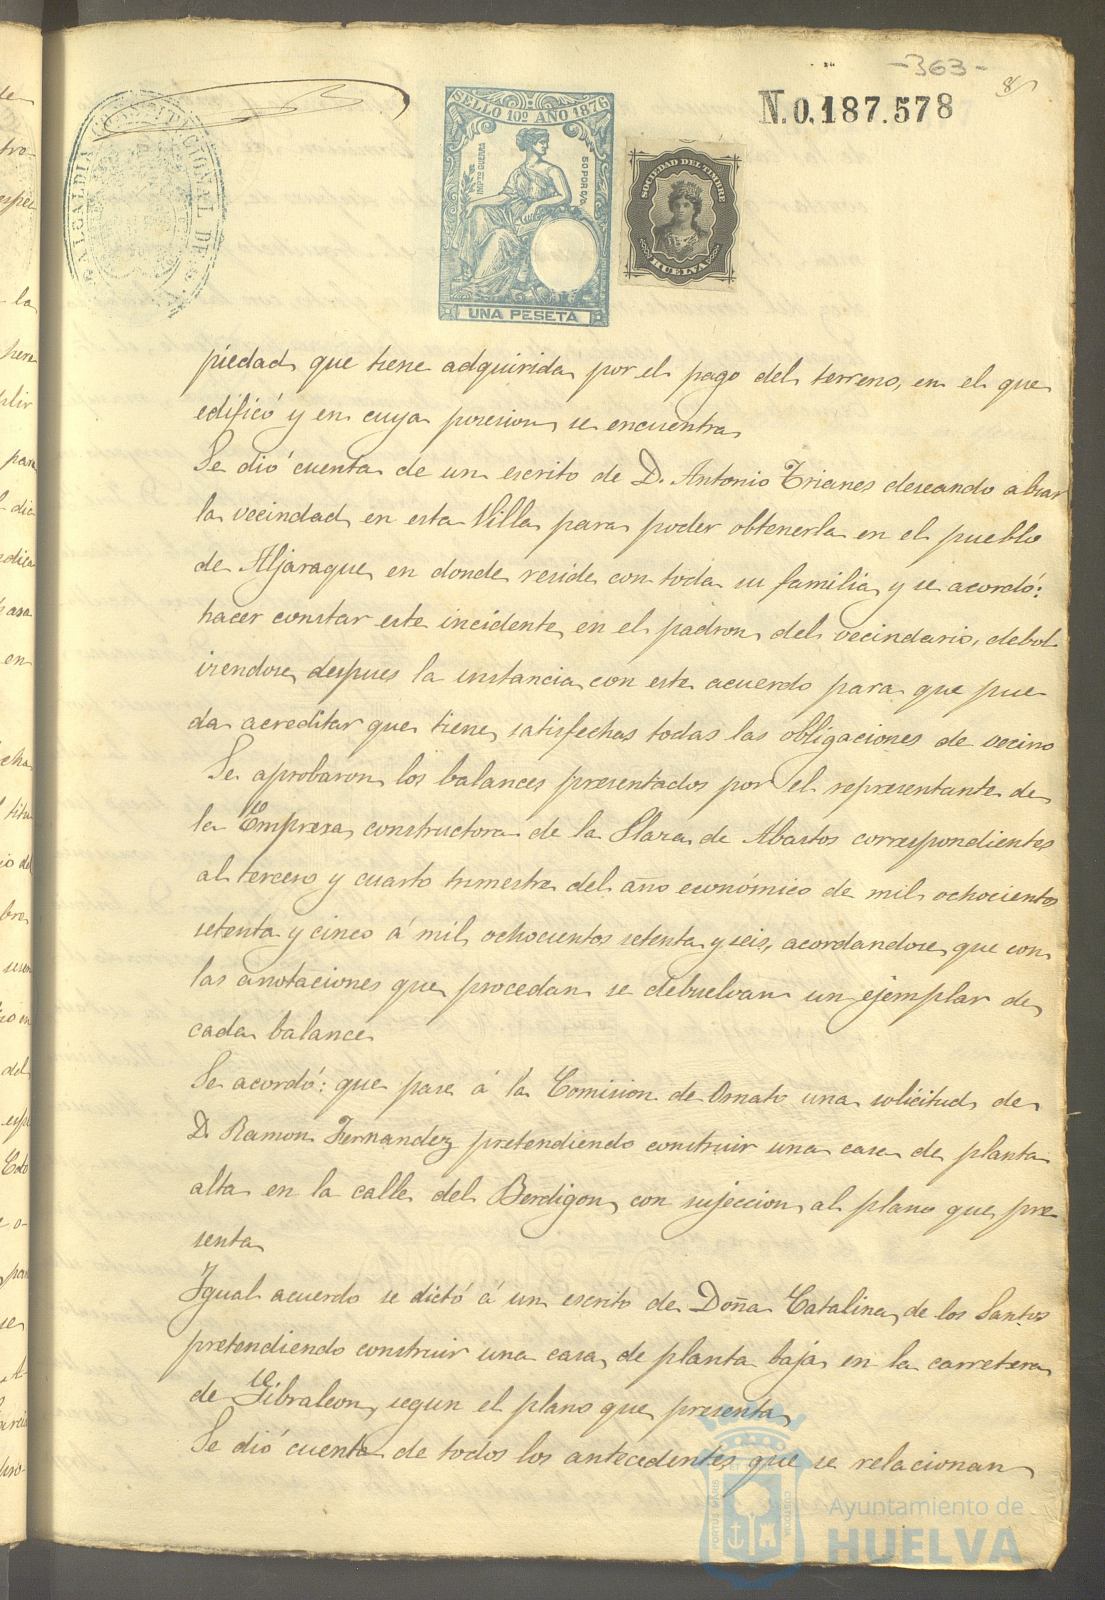 -363-
N. 0,187.578
SELLO 10º AÑO 1876
IMPTO GUERRA
50 POR 0/0
UNA PESETA
SOCIEDAD DEL TIMBRE
HUELVA
ALCALDIA CONSTITUCIONAL DE
piedad que tiene adquirida por el pago del terreno, en el que
edificó y en cuya posesion se encuentra
Se dió cuenta de un escrito de D. Antonio Trianes deseando alsar
la vecindad en esta Villa para poder obtenerla en el pueblo
de Aljaraque en donde reside con toda su familia y se acordó:
hacer constar este incidente en el padron del vecindario, debol
viendose despues la instancia con este acuerdo para que pue
da acreditar que tiene satisfechas todas las obligaciones de vecino
Se aprobaron los balances presentados por el representante de
la Empresa constructora de la Plaza de Abastos correspondientes
al tercero y cuarto trimestre del año económico de mil ochocientos
setenta y cinco á mil ochocientos setenta y seis, acordandose que con
las anotaciones que procedan se debuelvan un ejemplar de
cada balance
Se acordó: que pase á la Comision de Ornato una solicitud de
D. Ramon Fernandez pretendiendo construir una casa de planta
alta en la calle del Berdigon, con sujeccion al plano que pre
senta
Igual acuerdo se dictó á un escrito de Doña Catalina de los Santos
pretendiendo construir una casa de planta baja en la carretera
de Gibraleon, segun el plano que presenta
Se dió cuenta de todos los antecedentes que se relacionan
PORTUS MARIS
CUSTODIA
Ayuntamiento de
HUELVA